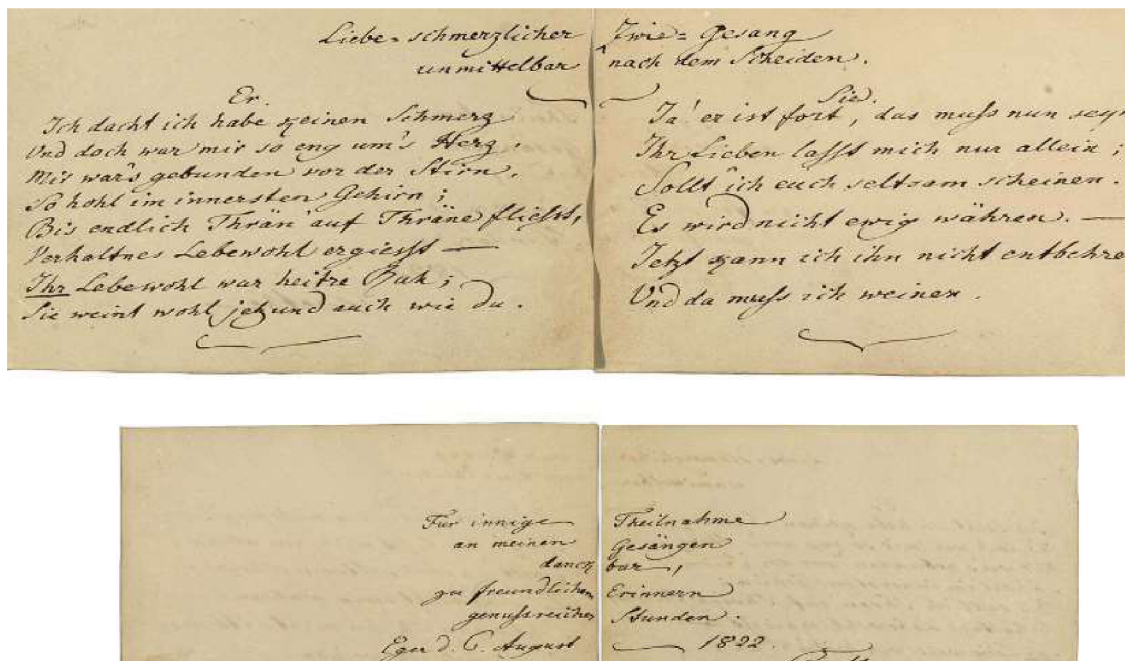 Liebe-schmerzlicher Zwie-Gesang
unmittelbar nach dem Scheiden.
Er.
Ich dacht ich habe keinen Schmerz
Und doch war mir so eng um's Herz,
Mir war's gebunden vor der Stirn,
So hohl im innersten Gehirn;
Bis endlich Thrän' auf Thräne fliesst,
Verhaltnes Lebewohl ergiesst —
Ihr Lebewohl war heitre Ruh;
Sie weint wohl jetzund auch wie du.
Sie.
Ja! er ist fort, das muß nun seyn
Ihr Lieben laßt mich nur allein;
Sollt' ich euch seltsam scheinen.
Es wird nicht ewig währen. —
Jetzt kann ich ihn nicht entbehre
Und da muß ich weinen.
Für innige Theilnahme
an meinen Gesängen
danckbar,
zu freundlichem Erinnern
genußreicher Stunden.
Eger d. 6. August 1822.